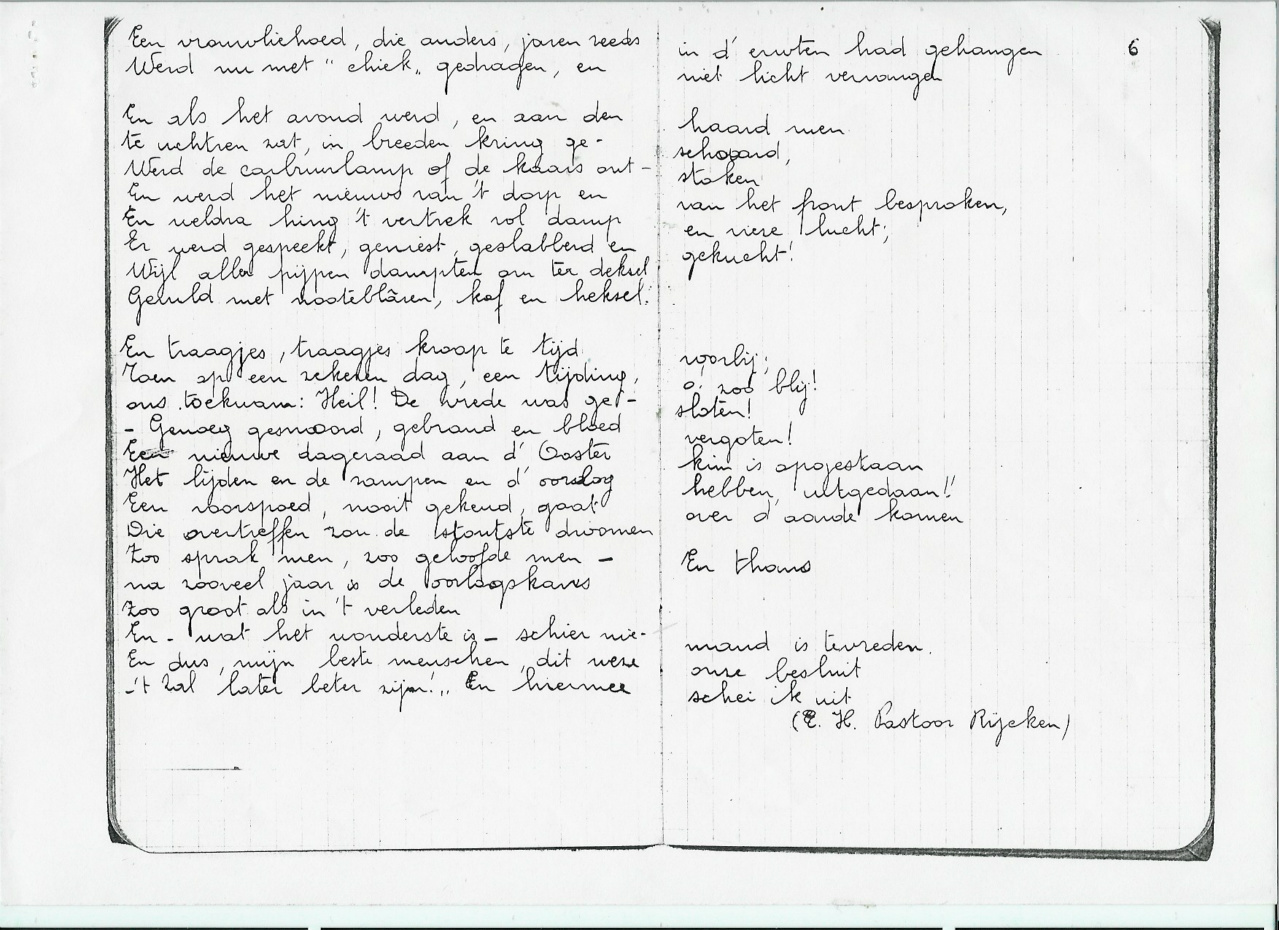 Een vrouwliehoed, die anders, jaren reeds in d' erwten had gehangen 6
Werd nu met "chiek„ gedragen, en niet licht vervangen
En als het avond werd, en aan den haard men
te uchtren zat, in breeden kring ge- schaard,
Werd de carbuurlamp of de kaars ont- stoken
En werd het nieuws van 't dorp en van het front besproken,
En weldra hing 't vertrek vol damp en viese lucht;
Er werd gespeekt, geniest, geslabberd en gekucht!
Wijl aller pijpen dampten om ter deksel
Gevuld met nooteblâren, kaf en heksel.
En traagjes, traagjes kroop te tijd voorbij;
Toen op een zekeren dag, een tijding, o! zoo blij!
ons toekwam: Heil! De vrede was ge- sloten!
- Genoeg gesmoord, gebrand en bloed vergoten!
Een nieuwe dageraad aan d' Ooster kim is opgestaan
Het lijden en de rampen en d' oorslog hebben uitgedaan!!
Een voorspoed, nooit gekend, gaat over d'aarde komen
Die overtreffen zou de stoutste droomen
Zoo sprak men, zoo geloofde men - En thans
na zooveel jaar is de oorlogskans
Zoo groot als in 't verleden
En - wat het wonderste is - schier nie- mand is tevreden.
En dus, mijn beste menschen, dit weze onze besluit
-'t Zal later beter zijn!„ En hiermee schei ik uit
(E. H. Pastoor Rijcken)